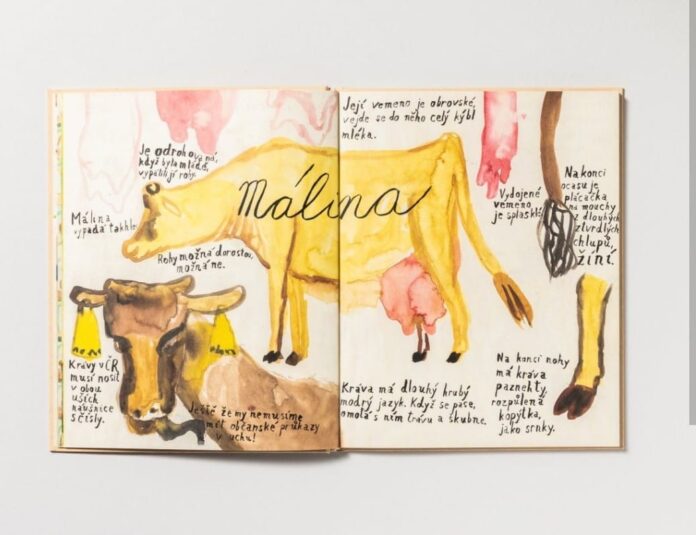 Je odrohovaná,
když byla mladá,
vypálili jí rohy.
Málina
vypadá takhle.
Málina
Rohy možná dorostou,
možná ne.
Krávy v ČR
musí nosit
v obou
uších
náušnice
s čísly.
Ještě že my nemusíme
mít občanské průkazy
v uchu!
Její vemeno je obrovské,
vejde se do něho celý kýbl
mléka.
Vydojené
vemeno
je splasklé.
Na konci
ocasu je
plácačka
na mouchy
z dlouhých
ztvrdlých
chlupů,
žíní.
Kráva má dlouhý hrubý
modrý jazyk. Když se pase,
omotá s ním trávu a škubne.
Na konci nohy
má kráva
paznehty,
rozpůlená
kopýtka,
jako srnky.